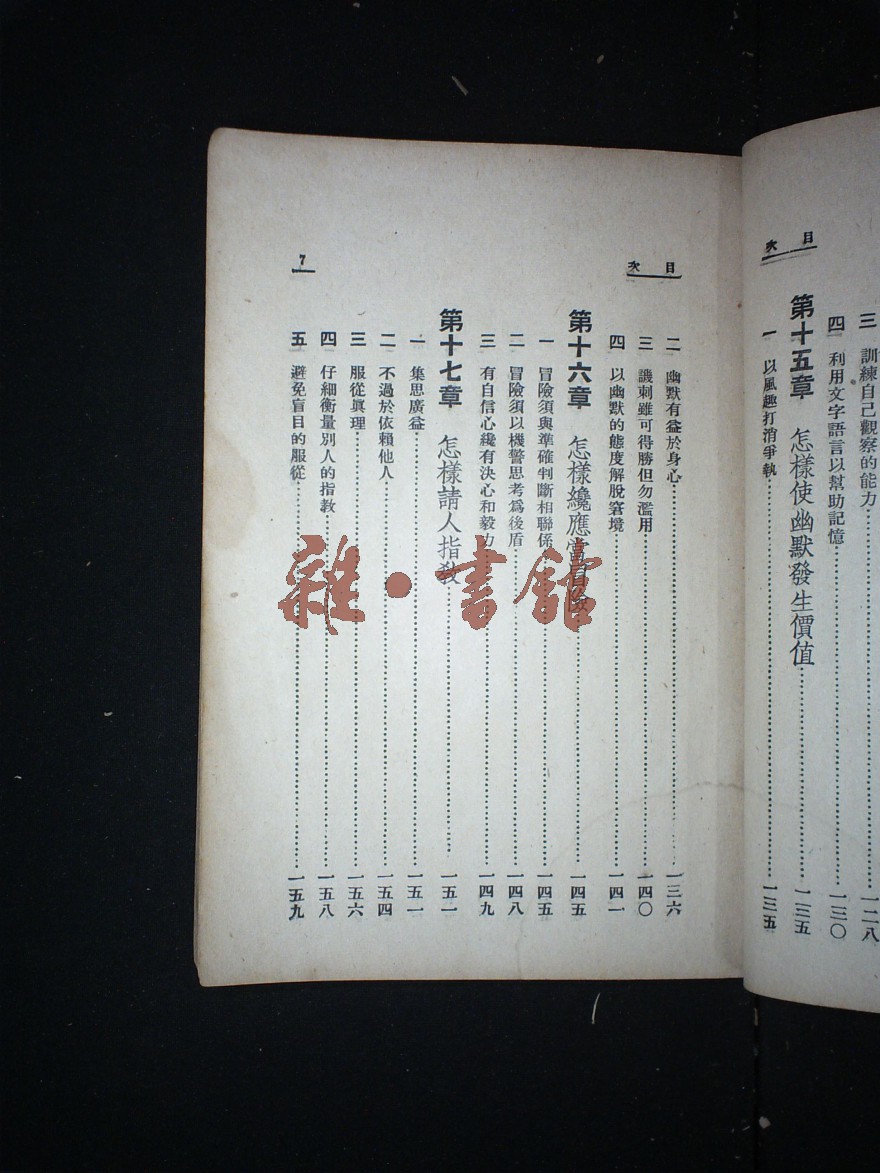 目次
三 訓練自己觀察的能力……一二八
四 利用文字語言以幫助記憶……一三〇
第十五章 怎樣使幽默發生價值……一三五
一 以風趣打消爭執……一三五
目次
二 幽默有益於身心……一三六
三 譏刺雖可得勝但勿濫用……一四〇
四 以幽默的態度解脫窘境……一四一
第十六章 怎樣纔應當冒險……一四五
一 冒險須與準確判斷相聯係……一四五
二 冒險須以機警思考爲後盾……一四八
三 有自信心纔有決心和毅力……一四九
第十七章 怎樣請人指教……一五一
一 集思廣益……一五一
二 不過於依賴他人……一五四
三 服從眞理……一五六
四 仔細衡量別人的指教……一五八
五 避免盲目的服從……一五九
7
雜·書館